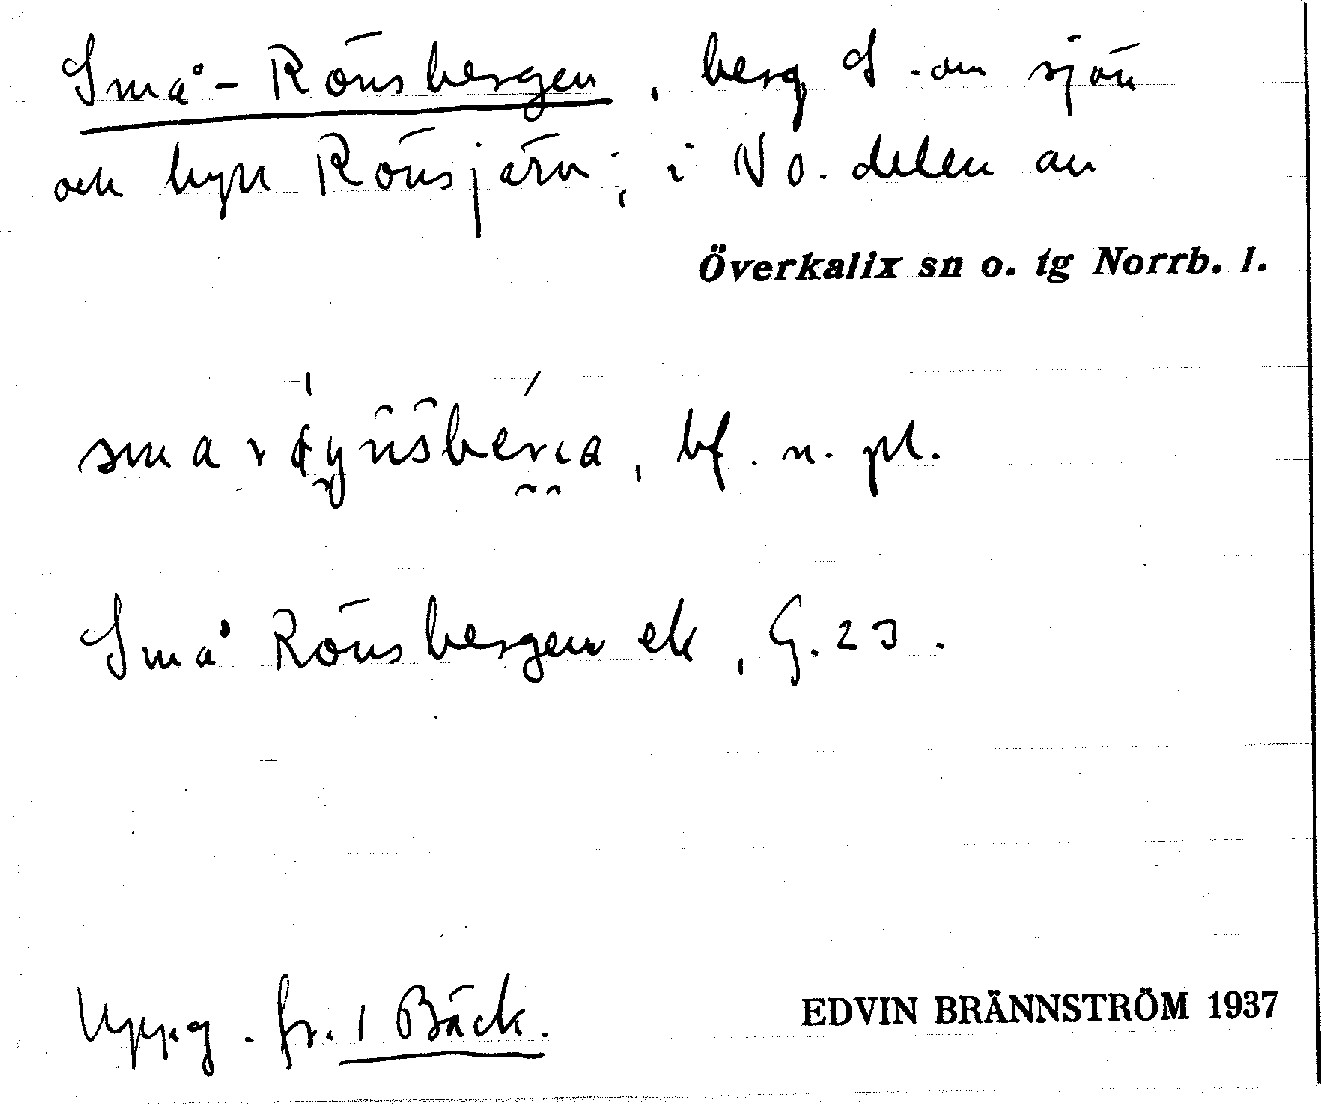 Små-Rönsbergen, berg S. om sjön
och byn Rönsjärv; i NO. delen av
Överkalix sn o. tg Norrb. l.
bf. n. pl.
Små Rönsbergen ek, G. 23.
Uppg. fr. 1 Bäck.
EDVIN BRÄNNSTRÖM 1937